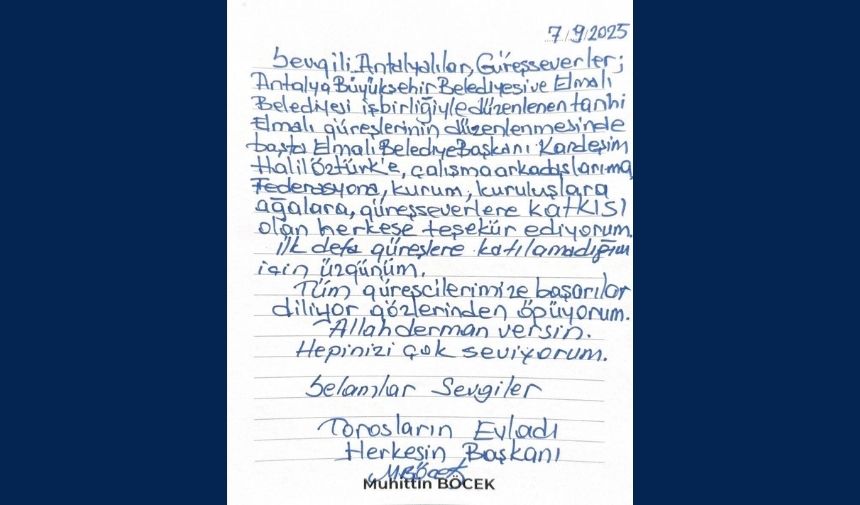 7/9/2025
Sevgili Antalyalılar, Güreşseverler;
Antalya Büyükşehir Belediyesi ve Elmalı
Belediyesi işbirliğiyle düzenlenen tarihi
Elmalı güreşlerinin düzenlenmesinde
başta Elmalı Belediye Başkanı Kardeşim
Halil Öztürk'e, çalışma arkadaşlarıma,
Federasyona, kurum, kuruluşlara
ağalara, güreşseverlere katkısı
olan herkese teşekür ediyorum.
İlk defa güreşlere katılamadığım
için üzgünüm.
Tüm güreşcilerimize başarılar
diliyor gözlerinden öpüyorum.
Allah derman versin.
Hepinizi çok seviyorum.
Selamlar Sevgiler
Torosların Evladı
Herkesin Başkanı
MBöcek
Muhittin BÖCEK